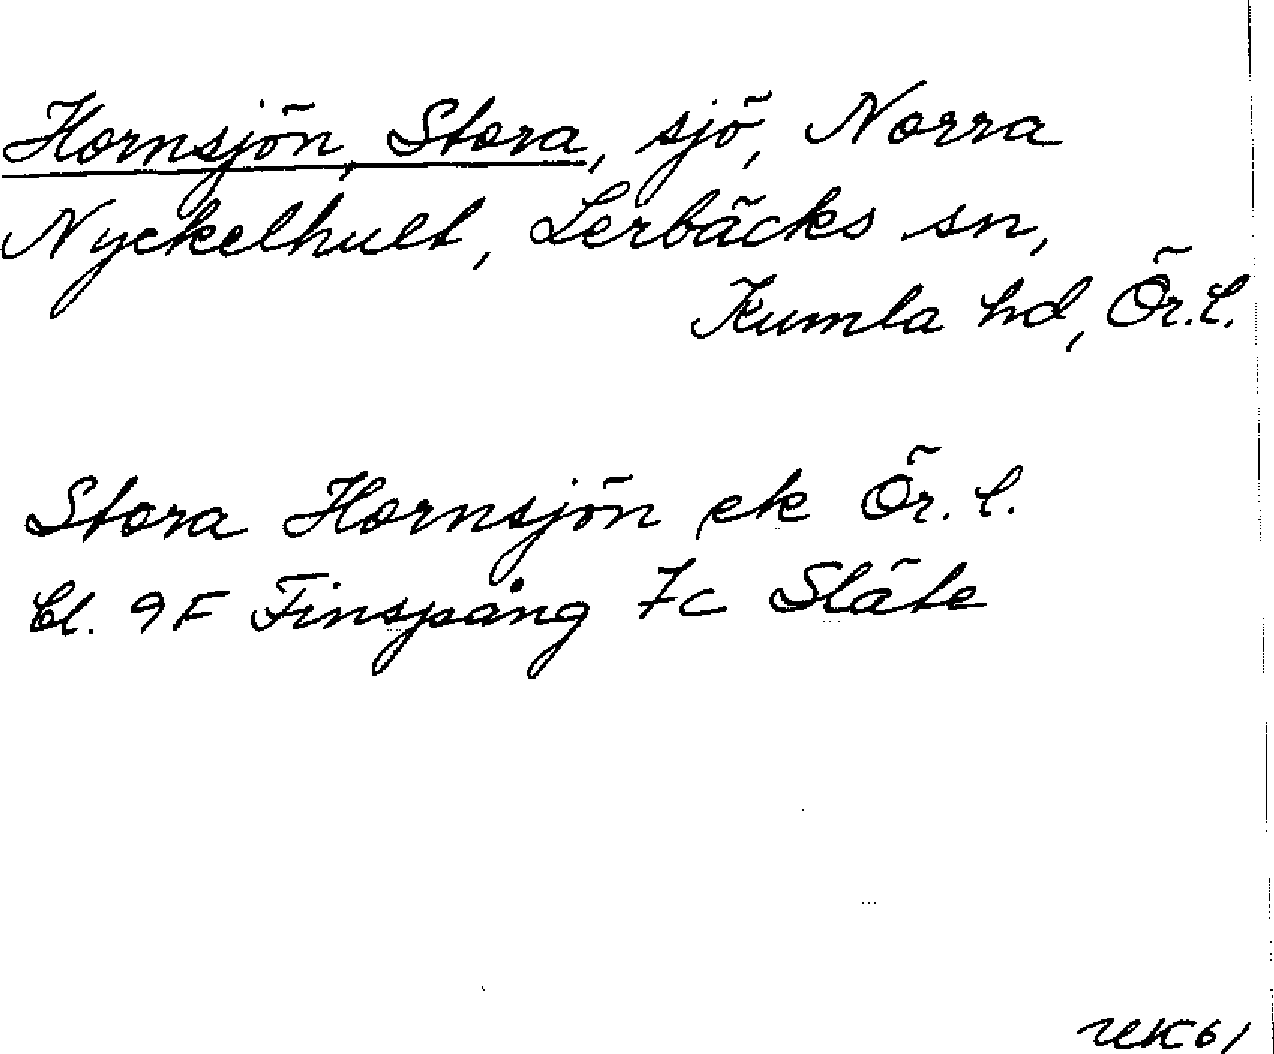 Hornsjön, Stora, sjö, Norra
Nyckelhult, Lerbäcks sn,
Kumla hd, Ör.l.
Stora Hornsjön ek Ör.l.
bl. 9F Finspång 7c Släte
UK61